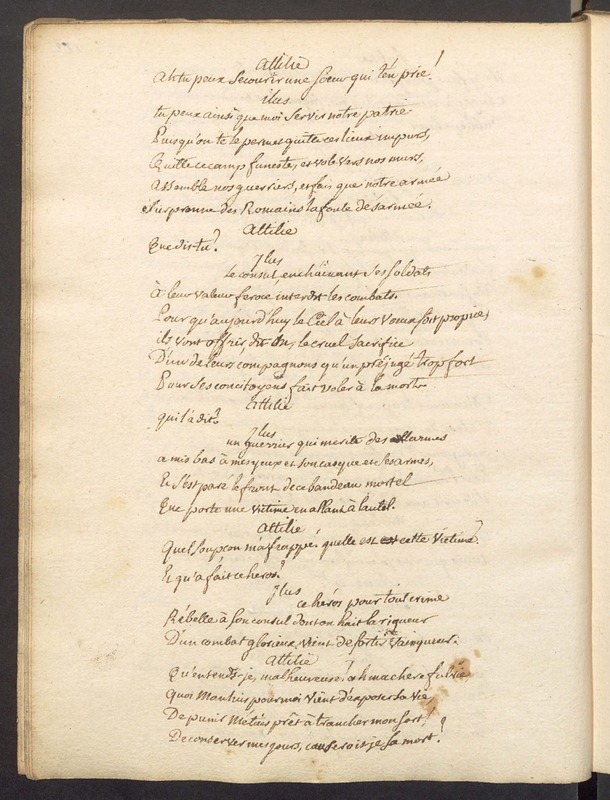 Attilie
Ah tu peux secourir une sœur qui t'en prie!
ilus
tu peux ainsi que moi servir notre patrie
Puisqu'on te le permet quitte ces lieux impurs,
Quitte ce camp funeste, et vole vers nos murs,
assemble nos guerriers, et fais que notre armée
Surprenne des Romains la foule désarmée.
Attilie
Que dis-tu?
Jlus
Le consul enchainant ses soldats
à leur valeur feroce interdit les combats.
Pour qu'aujourd'huy le Ciel à leurs vœux soit propice,
ils vont offrir, dit on, le cruel sacrifice
D'un de leurs compagnons qu'un préjugé trop fort
Pour ses concitoyens fait voler à la mort
Attilie
qui l'a dit?
Jlus
un guerrier qui merite des larmes
a mis bas à mes yeux et son casque et ses armes,
Et s'est paré le front de ce bandeau mortel
Que porte une victime en allant à l'autel.
Attilie
Quel soupçon m'a frappé! quelle est cette victime?
Et qu'a fait ce heros?
Jlus
ce héros pour tout crime
Rébelle à son consul dont on hait la rigueur
D'un combat glorieux vient de sortir vainqueur.
Attilie
Qu'entends-je, malheureuse! ah ma chere fulvie
Quoi Manlius pour moi vient d'exposer sa vie
De punir Metius prêt à trancher mon sort,
De conserver mes jours, causerois-je sa mort?